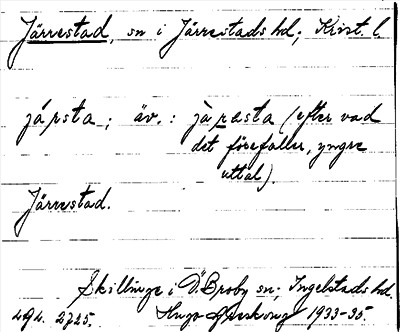 Järrestad, sn i Järrestads hd; Krist. l.
jársta; äv.: jàrəsta (efter vad
det förefaller, yngre
uttal).
Järrestad.
Skillinge i Ö. Broby sn; Ingelstads hd.
494. 2725. Hugo Areskoug 1933-35.